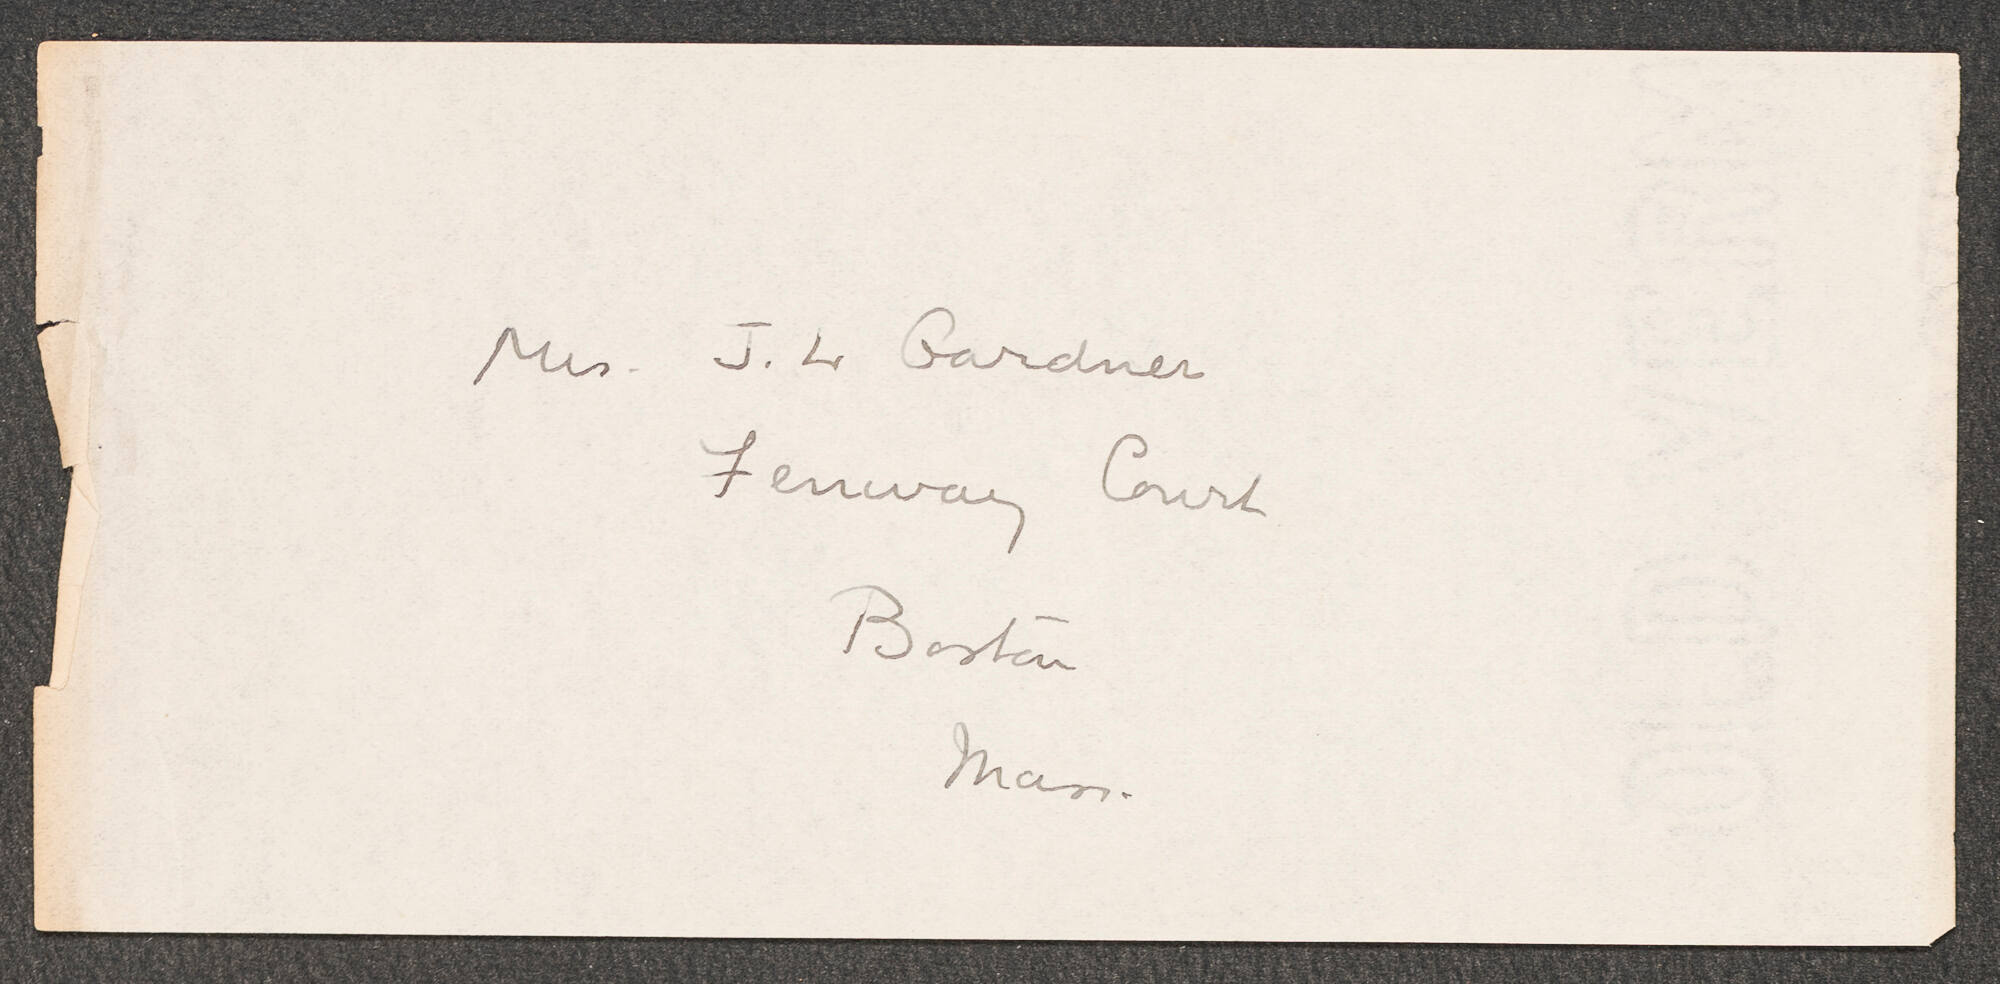 Mrs. J. L Gardner
Fenway Court
Boston
Mass.